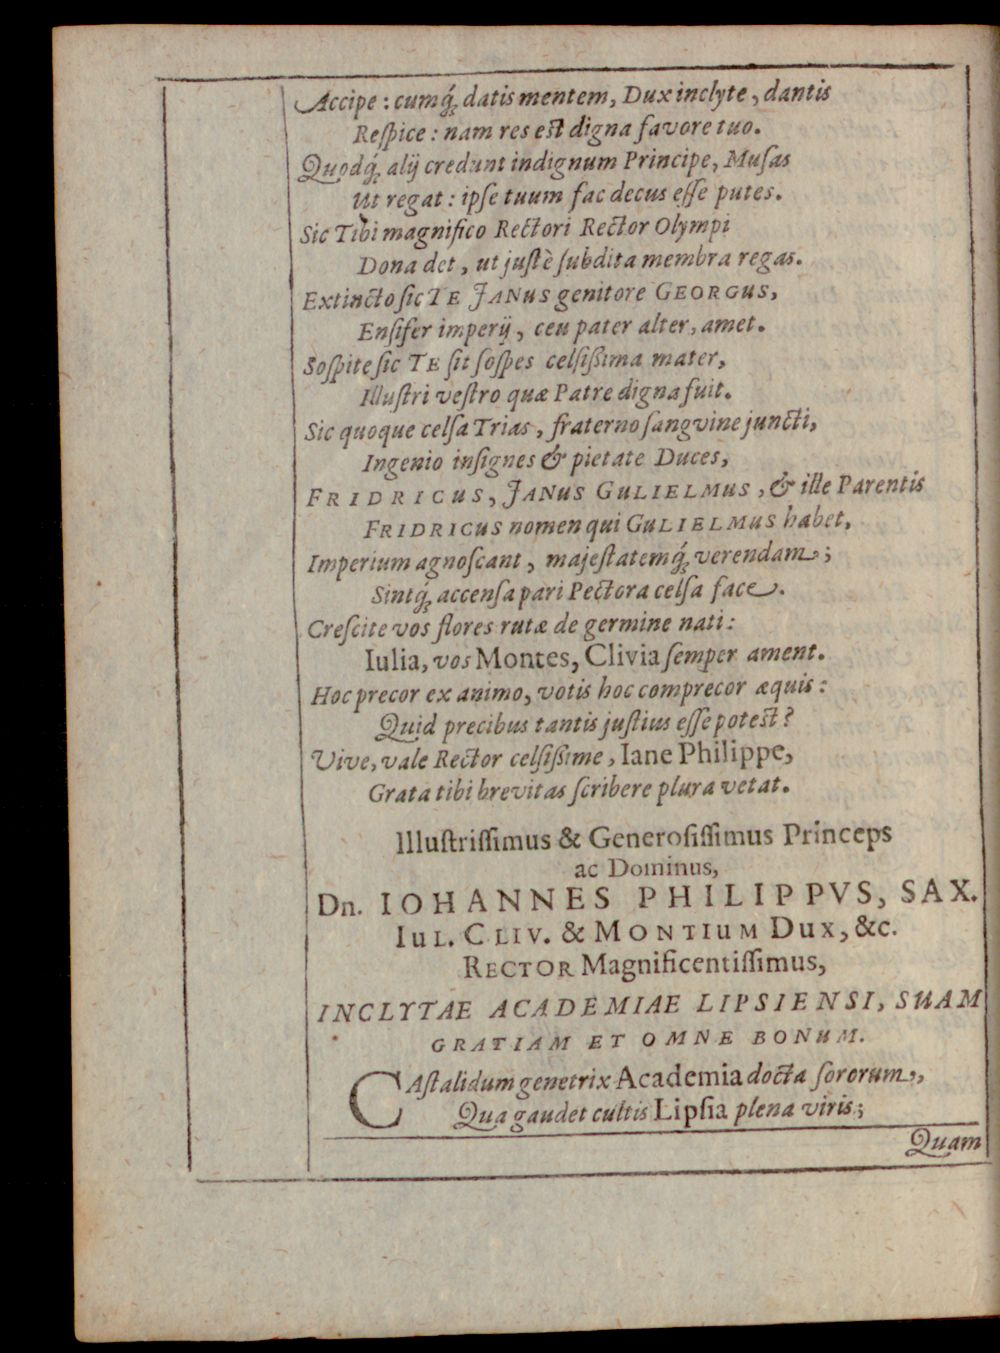 Accipe : cumq́ꝫ datis mentem, Dux inclyte, dantis
Reſpice : nam res est digna favore tuo.
Quodq́ꝫ alij credunt indignum Principe, Muſas
Ut regat : ipſe tuum fac decus eſſe putes.
Sic Tibi magnifico Rectori Rector Olympi
Dona det, ut juſtè ſubdita membra regas.
Extincto ſic TE JANUS genitore GEORGUS,
Enſifer imperij, ceu pater alter, amet.
Soſpite ſic TE ſit ſoſpes celſißima mater,
Illuſtri veſtro quæ Patre digna fuit.
Sic quoque celſa Trias, fraterno ſangvine juncti,
Ingenio inſignes & pietate Duces,
FRIDRICUS, JANUS GULIELMUS, & ille Parentis
FRIDRICUS nomen qui GULIELMUS habet,
Imperium agnoſcant, majeſtatemq́ꝫ verendam;
Sintq́ꝫ accenſa pari Pectora celſa face.
Creſcite vos flores rutæ de germine nati:
Iulia, vos Montes, Clivia ſemper ament.
Hoc precor ex animo, votis hoc comprecor æquis:
Quid precibus tantis juſtius eſſe potest?
Vive, vale Rector celſißime, Iane Philippe,
Grata tibi brevitas ſcribere plura vetat.
Illuſtriſſimus & Generoſiſſimus Princeps
ac Dominus,
Dn. IOHANNES PHILIPPVS, SAX.
IUL. CLIV. & MONTIUM DUX, &c.
RECTOR Magnificentiſſimus,
INCLYTAE ACADEMIAE LIPSIENSI, SUAM
GRATIAM ET OMNE BONUM.
CAſtalidum genetrix Academia docta ſororum,
Qua gaudet cultis Lipſia plena viris;
Quam